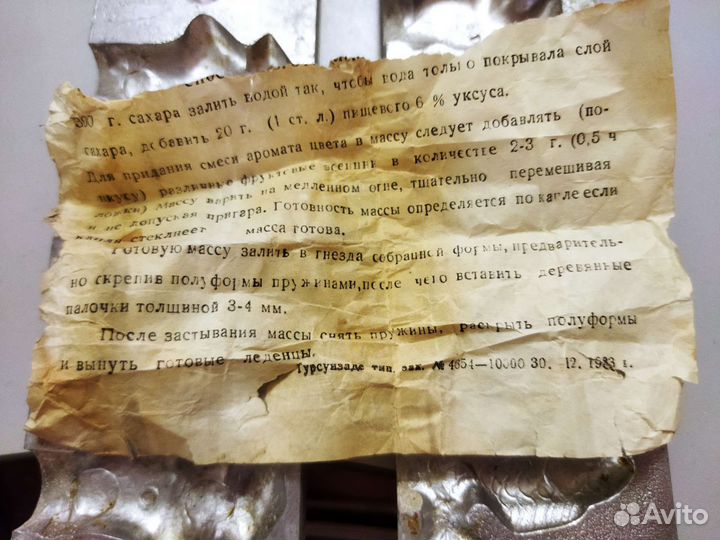 300 г. сахара залить водой так, чтобы вода только покрывала слой
сахара, добавить 20 г. (1 ст. л.) пищевого 6 % уксуса.
Для придания смеси аромата цвета в массу следует добавлять (по-
вкусу) различные фруктовые эсенции в количестве 2-3 г. (0,5 ч
ложки) Массу варить на медленном огне, тщательно перемешивая
и не допуская пригара. Готовность массы определяется по капле если
капля стеклнеет масса готова.
Готовую массу залить в гнезда собранной формы, предваритель-
но скрепив полуформы пружинами, после чего вставить деревянные
палочки толщиной 3-4 мм.
После застывания массы снять пружины, раскрыть полуформы
и вынуть готовые леденцы.
Турсунзаде тип. зак. № 4654—10000 30. 12. 1983 г.
Avito